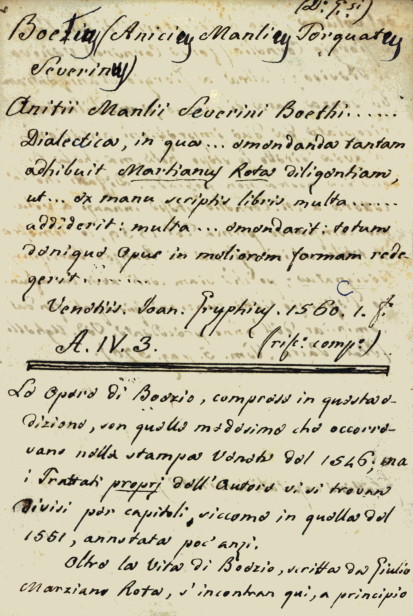 Boetius (Anicius Manlius Torquatus
Severinus)
Anitii Manlii Severini Boethi......
Dialectica, in qua ... emendanda tantam
adhibuit Martianus Rota diligentiam,
ut ... ex manu scriptis libris multa ......
addiderit: multa ... emendarit: totum
denique opus in meliorem formam rede-
gerit .......
Venetiis. Ioan. Gryphius. 1560. 1. f.
A. IV. 3. (rist. comp.)
Le Opere di Boezio, comprese in questa e-
dizione, son quelle medesime che occorro-
vano nella stampa Veneta del 1546; ma
i Trattati proprj dell'Autore vi si trovan
divisi per capitoli, siccome in quella del
1551, annotata poc'anzi.
Oltre la Vita di Boezio, scritta da Giulio
Marziano Rota, s'incontran qui, a principio